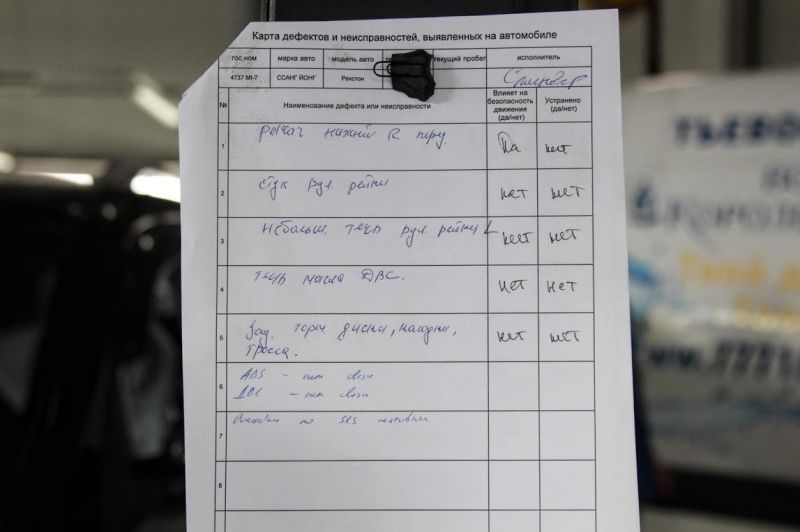 Карта дефектов и неисправностей, выявленных на автомобиле
гос.ном марка авто модель авто текущий пробег исполнитель
4737 MI-7 ССАНГ ЙОНГ Рекстон
№ Наименование дефекта или неисправности Влияет на безопасность движения (да/нет) Устранено (да/нет)
1 рычаг нижний R пер. Да нет
2 стук рул. рейки нет нет
3 Небольш. течь рул. рейки L нет нет
4 течь масла ДВС. нет нет
5 Зад. торм. диски, колодки, нет нет
тросса.
6 ABS - нет связи
- нет связи
7 по SRS
8
ТЬЕВО
КОРОЛ